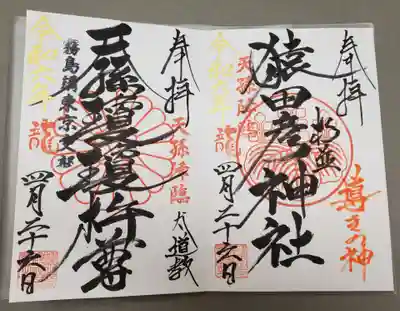 奉拝
導きの神
猿田彦神社
天孫降臨
令和六年
龍
四月二十六日
奉拝
天孫降臨
天孫瓊瓊杵尊
霧島講東京支部
令和六年
龍
四月二十六日